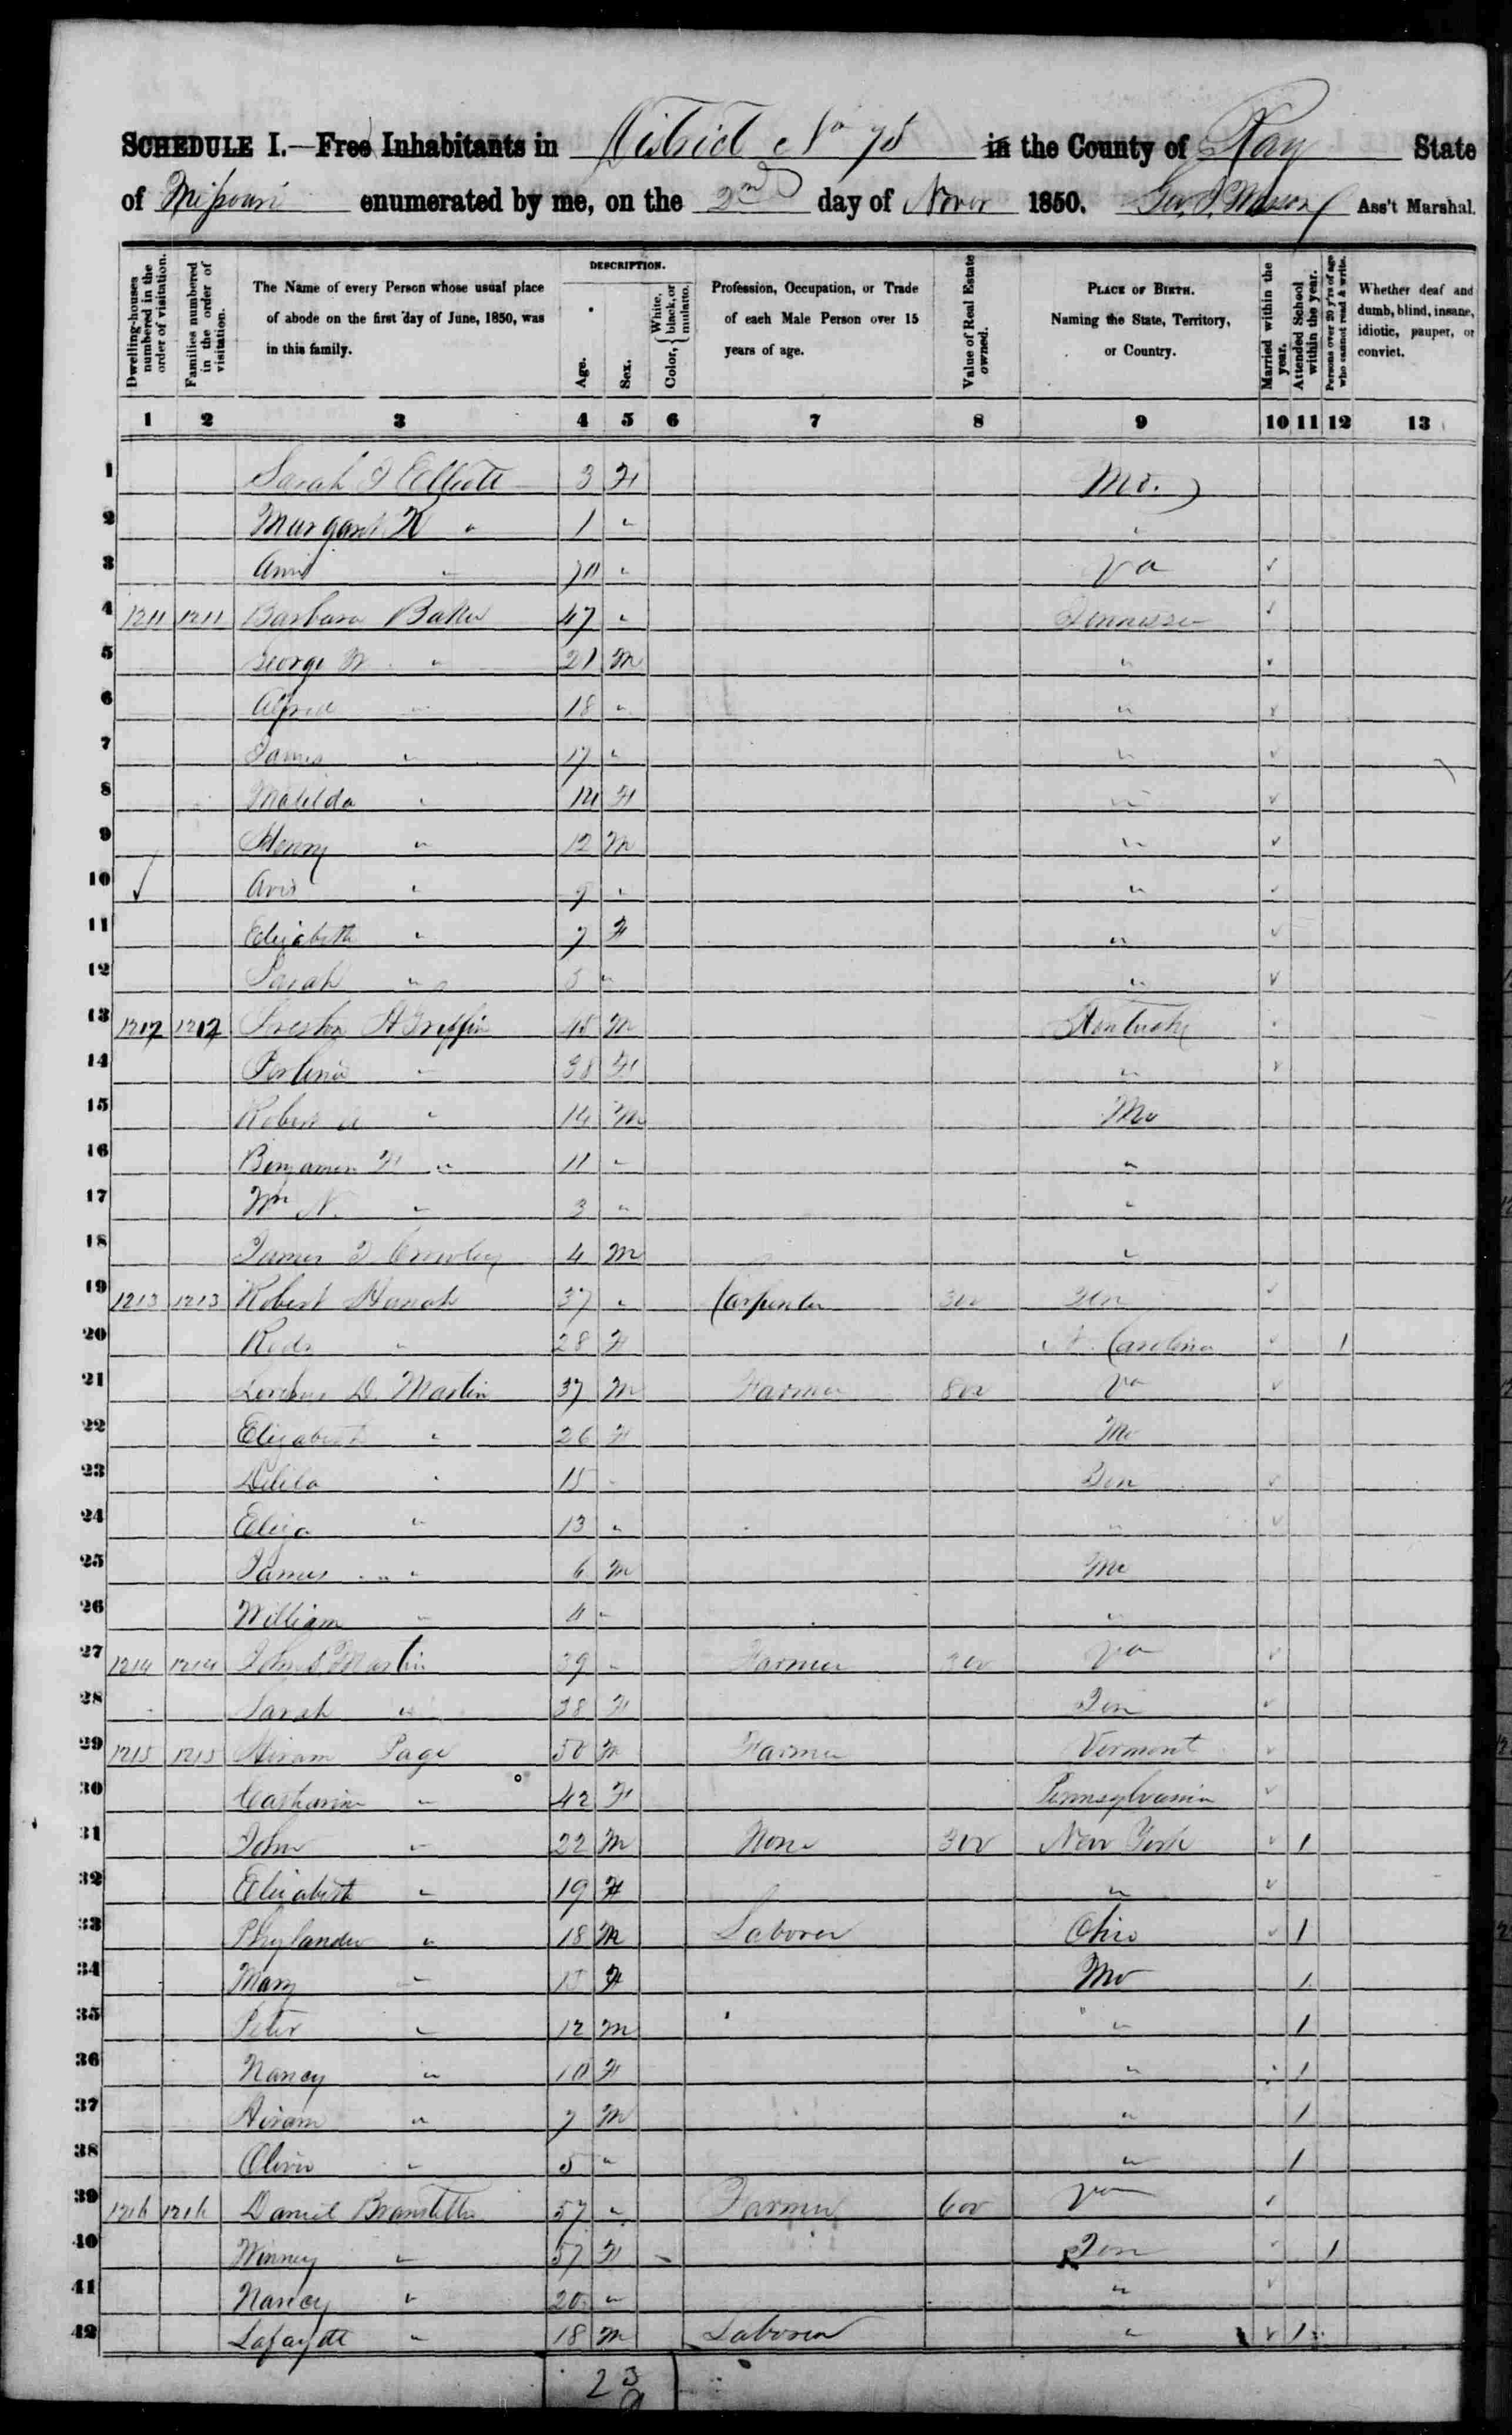 SCHEDULE I.—Free Inhabitants in District No 75 in the County of Ray State
of Missouri enumerated by me, on the 2nd day of Novr 1850. Geo. Mason Ass't Marshal.
Dwelling-houses numbered in the order of visitation.
Families numbered in the order of visitation.
The Name of every Person whose usual place of abode on the first day of June, 1850, was in this family.
DESCRIPTION.
Age.
Sex.
Color, { White, black, or mulatto.
Profession, Occupation, or Trade of each Male Person over 15 years of age.
Value of Real Estate owned.
PLACE OF BIRTH. Naming the State, Territory, or Country.
Married within the year.
Attended School within the year.
Persons over 20 y'rs of age who cannot read & write.
Whether deaf and dumb, blind, insane, idiotic, pauper, or convict.
1 2 3 4 5 6 7 8 9 10 11 12 13
1 Sarah 3 F Mo.
2 Margaret " 1 " "
3 " 70 " Va ✓
4 1211 1211 Barbara Baker 47 " Tennessee ✓
5 George W " 21 M " ✓
6 Alfred " 18 " " ✓
7 James " 17 " " ✓
8 Matilda " 14 F " ✓
9 Henry " 12 M " ✓
10 ✓ " 9 " " ✓
11 Elizabeth " 7 F " ✓
12 Sarah " 5 " " ✓
13 1212 1212 Preston H Griffin 45 M Kentucky
14 " 38 F " ✓
15 Robert " 14 M Mo
16 Benjamin F " 11 " "
17 Wm N. " 3 " "
18 James T Crowley 4 M "
19 1213 1213 Robert Hanah 37 " Carpenter 300 Ten ✓
20 " 28 F N. Carolina ✓ 1
21 D. Martin 37 M Farmer 800 Va ✓
22 Elizabeth " 26 F Mo
23 Delila " 15 " Ten ✓
24 Eliza " 13 " " ✓
25 James " 6 M Mo
26 William " 4 " "
27 1214 1214 John Martin 39 " Farmer 300 Va ✓
28 Sarah " 38 F Ten ✓
29 1215 1215 Hiram Page 50 M Farmer Vermont ✓
30 Catharine " 42 F Pennsylvania ✓
31 John " 22 M None 300 New York ✓ 1
32 Elizabeth " 19 F " ✓
33 Phylander " 18 M Laborer Ohio ✓ 1
34 Mary " 15 F Mo 1
35 Peter " 12 M " 1
36 Nancy " 10 F " 1
37 Hiram " 7 M " 1
38 Oliver " 5 " " 1
39 1216 1216 Daniel Branstetter 57 " Farmer 600 Va ✓
40 Winney " 57 F Ten ✓ 1
41 Nancy " 20 " " ✓
42 Lafayette " 18 M Laborer " ✓ 1
23